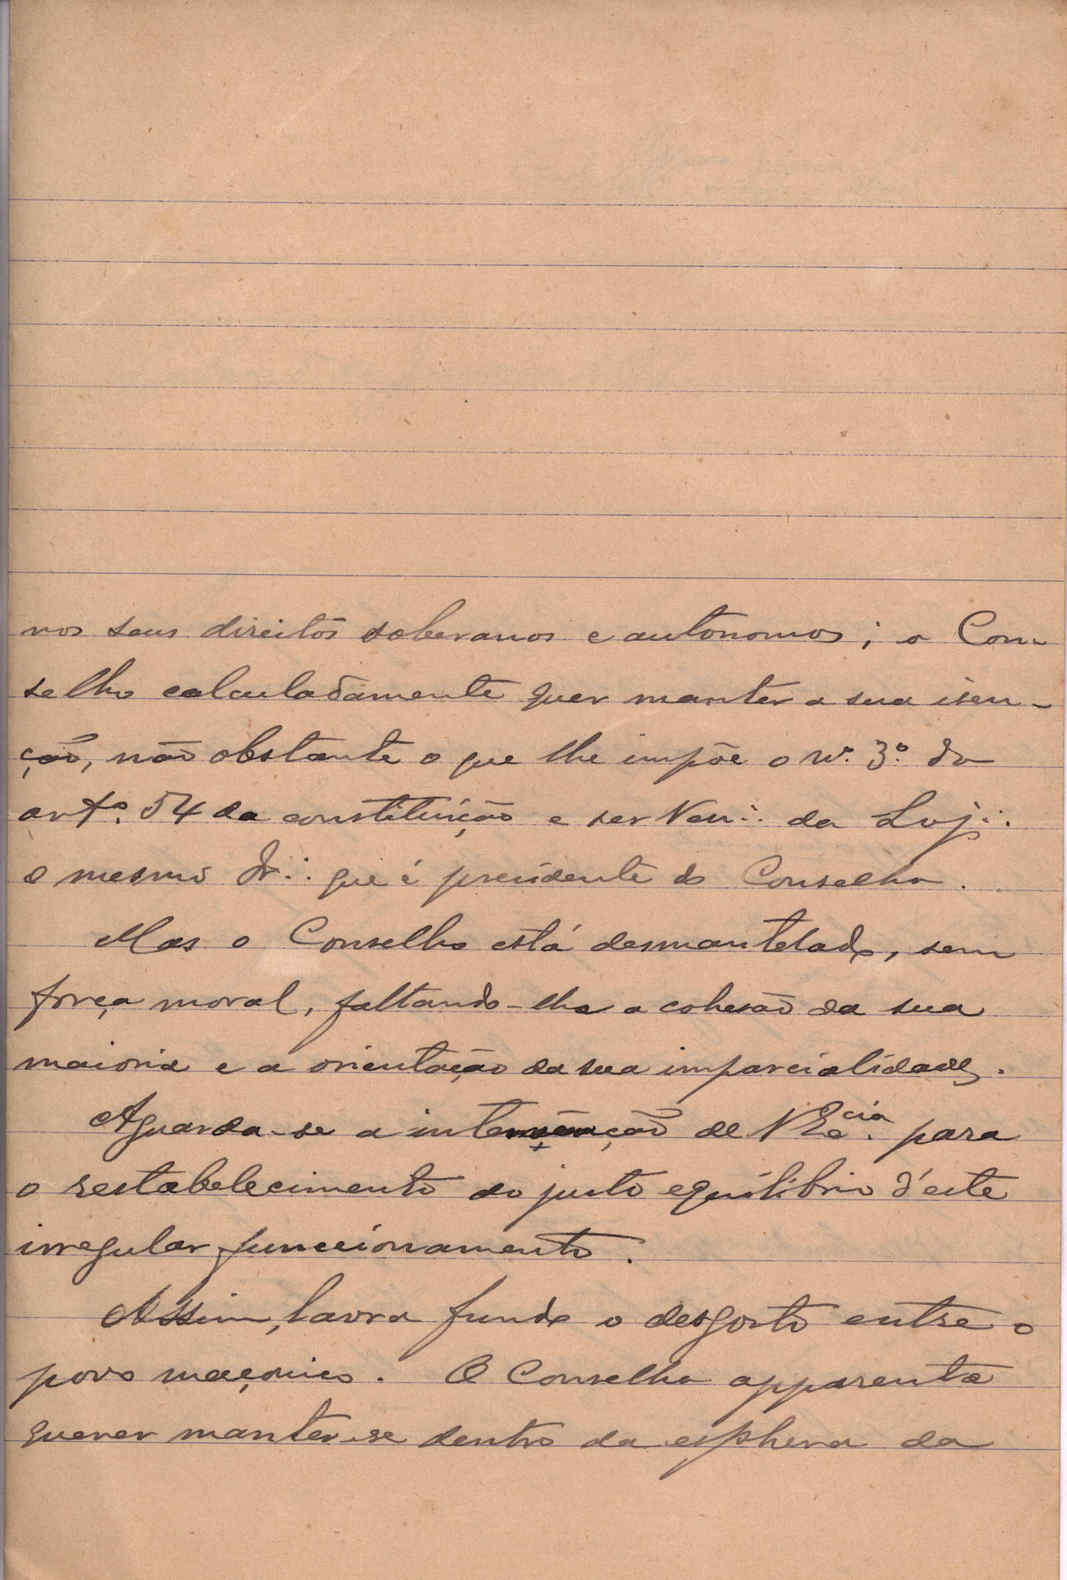 nos seus direitos soberanos e autonomos; o Con-
selho calculadamente quer manter a sua isen-
ção, não obstante o que lhe impõe o nº. 3º. do
artº. 54 da constituição e ser Ven∴ da Loj∴
o mesmo Ir∴ que é presidente do Conselho.
Mas o Conselho está desmantelado, sem
força moral, faltando-lhe a cohesão da sua
maioria e a orientação da sua imparcialidade.
Aguarda-se a intervenção de V Eˣcia. para
o restabelecimento do justo equilibrio d'este
irregular funccionamento.
Assim, lavra fundo o desgosto entre o
povo maçonico. O Conselho apparenta
querer manter-se dentro da esphera da